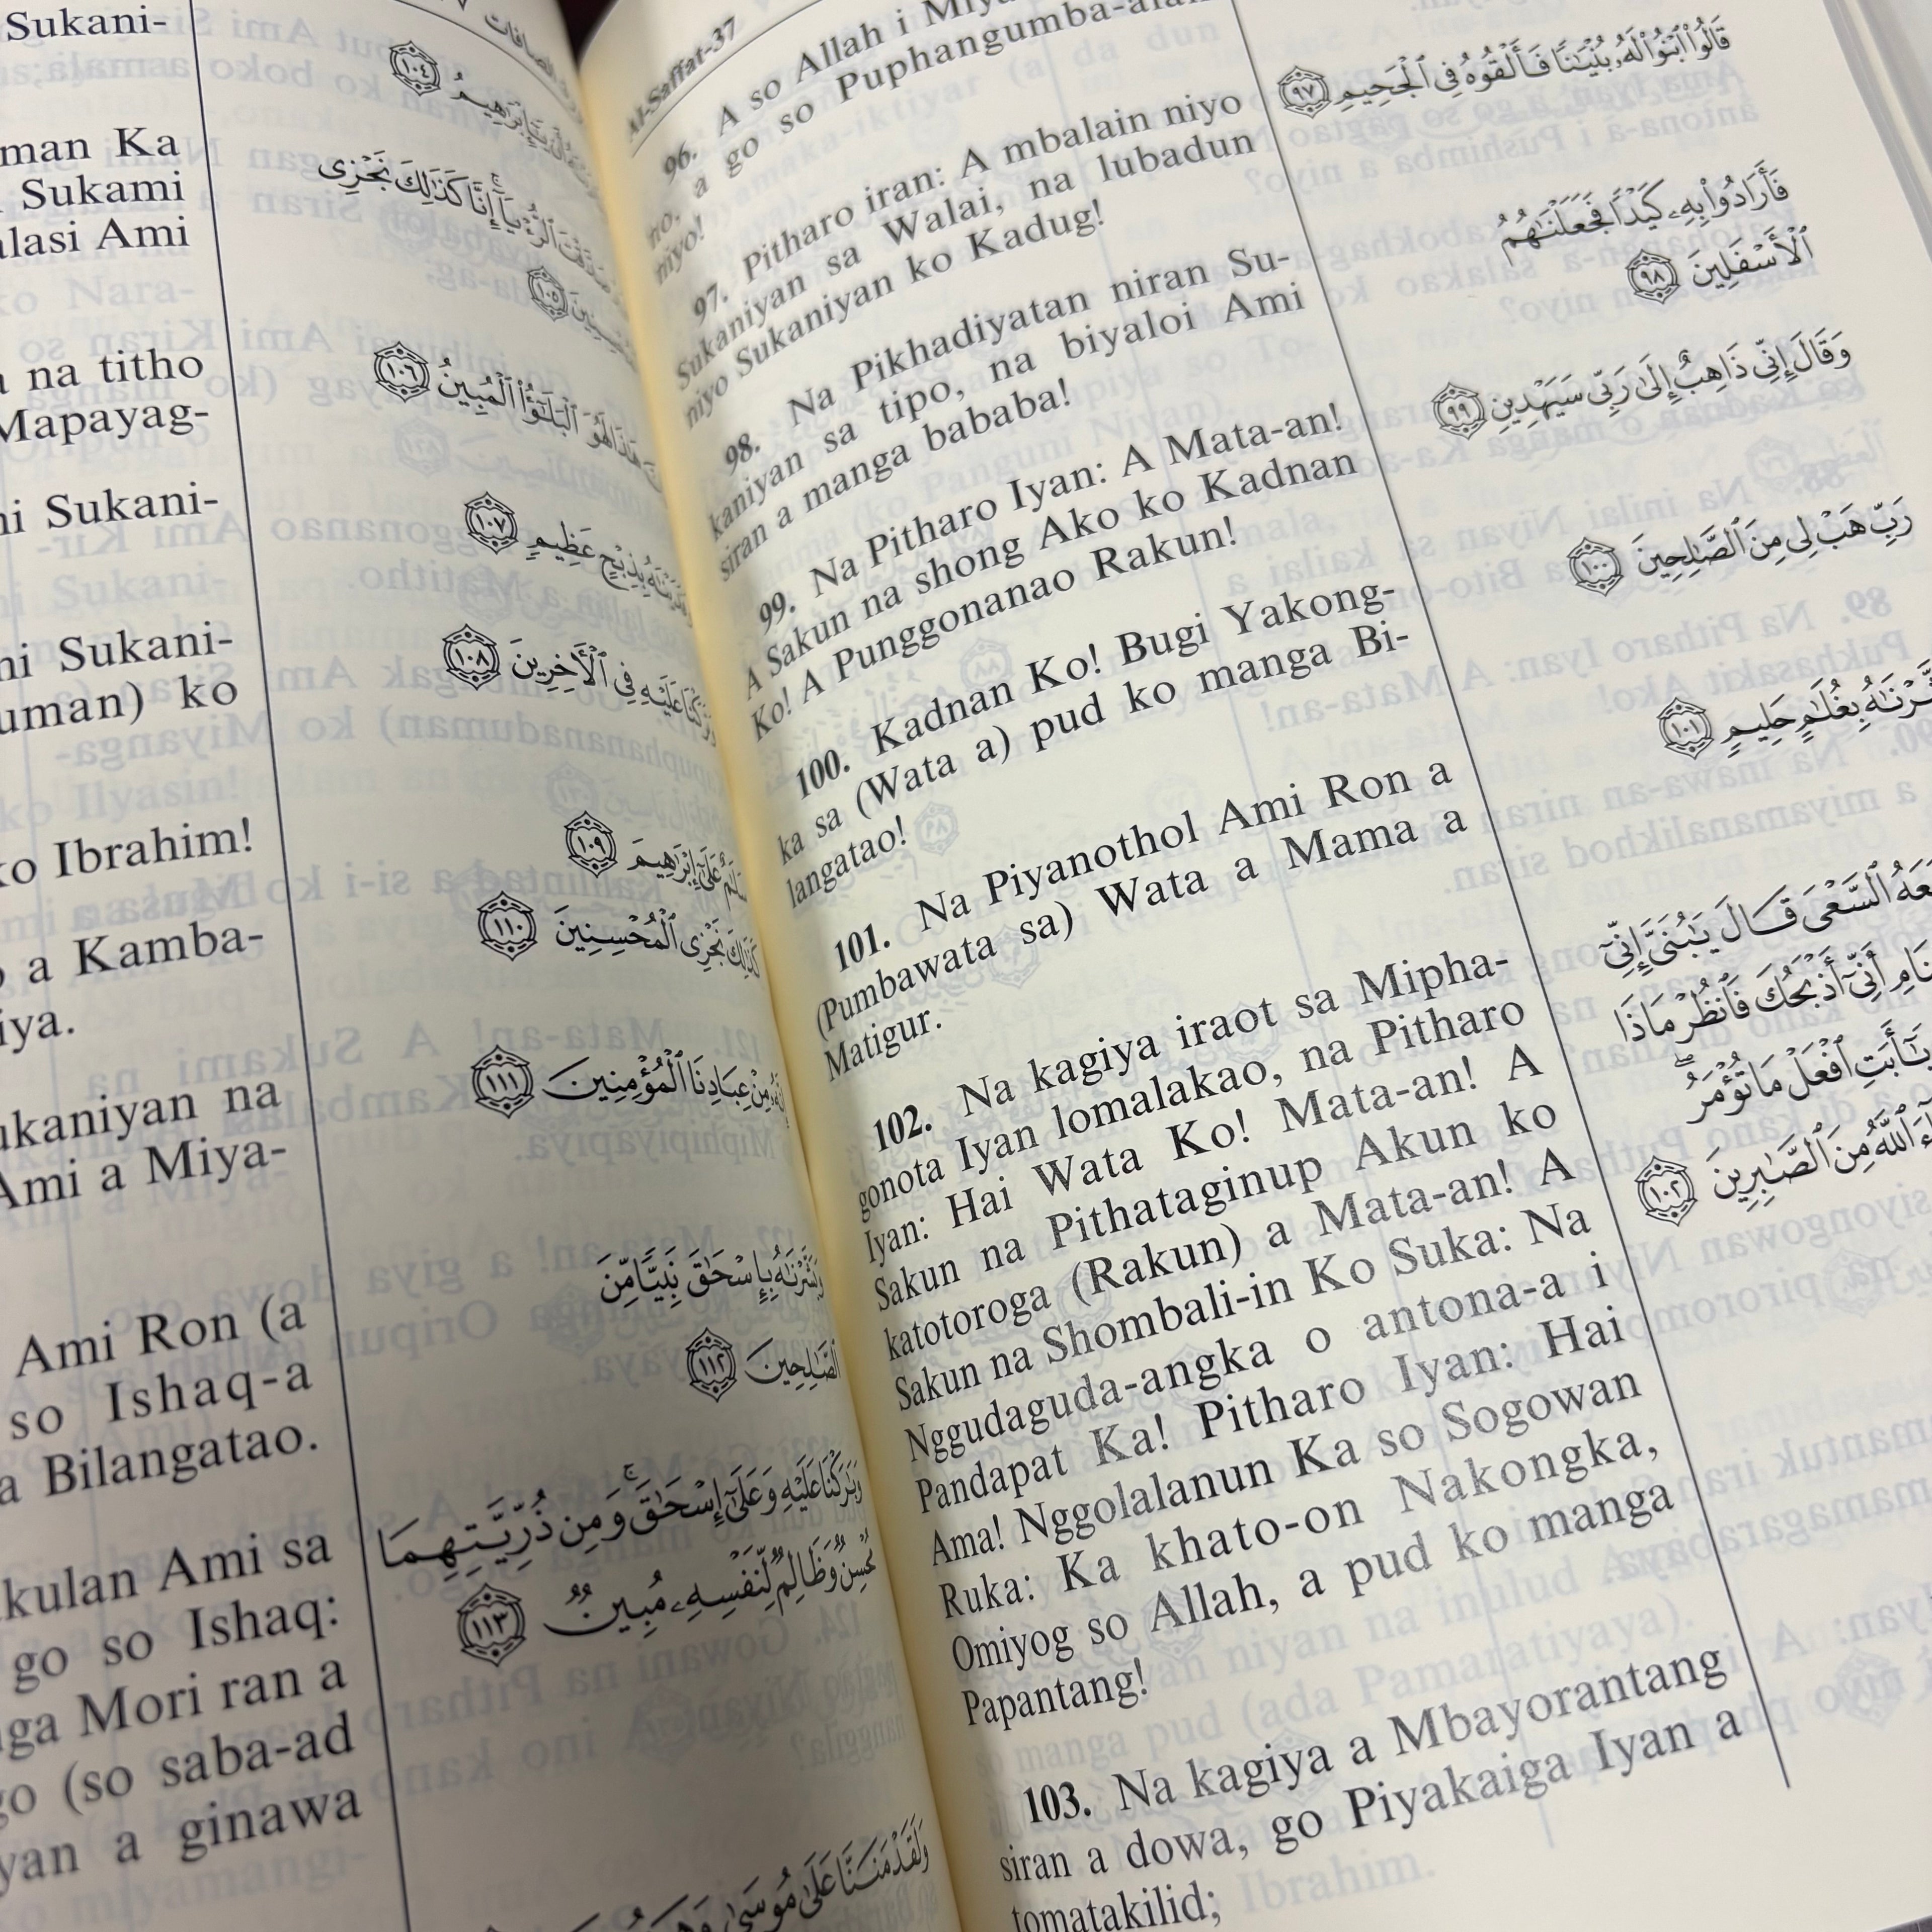 Al-Saffat-37
96. A so Allah i
no, a go so Puphangumba-alan
niyo!
97. Pitharo iran: A mbalain niyo
Sukaniyan sa Walai, na lubadun
niyo Sukaniyan ko Kadug!
98. Na Pikhadiyatan niran Su-
kaniyan sa tipo, na biyaloi Ami
siran a manga bababa!
99. Na Pitharo Iyan: A Mata-an!
A Sakun na shong Ako ko Kadnan
Ko! A Punggonanao Rakun!
100. Kadnan Ko! Bugi Yakong-
ka sa (Wata a) pud ko manga Bi-
langatao!
101. Na Piyanothol Ami Ron a
(Pumbawata sa) Wata a Mama a
Matigur.
102. Na kagiya iraot sa Mipha-
gonota Iyan lomalakao, na Pitharo
Iyan: Hai Wata Ko! Mata-an! A
Sakun na Pithataginup Akun ko
katotoroga (Rakun) a Mata-an! A
Sakun na Shombali-in Ko Suka: Na
Nggudaguda-angka o antona-a i
Pandapat Ka! Pitharo Iyan: Hai
Ama! Nggolalanun Ka so Sogowan
Ruka: Ka khato-on Nakongka,
Omiyog so Allah, a pud ko manga
Papantang!
103. Na kagiya a Mbayorantang
siran a dowa, go Piyakaiga Iyan a
tomatakilid;
قَالُوا۟ ٱبْنُوا۟ لَهُۥ بُنْيَـٰنًا فَأَلْقُوهُ فِى ٱلْجَحِيمِ ٩٧
فَأَرَادُوا۟ بِهِۦ كَيْدًا فَجَعَلْنَـٰهُمُ
ٱلْأَسْفَلِينَ ٩٨
وَقَالَ إِنِّى ذَاهِبٌ إِلَىٰ رَبِّى سَيَهْدِينِ ٩٩
رَبِّ هَبْ لِى مِنَ ٱلصَّـٰلِحِينَ ١٠٠
بِغُلَـٰمٍ حَلِيمٍ ١٠١
ٱلسَّعْىَ قَالَ يَـٰبُنَىَّ إِنِّىٓ
أَنِّىٓ أَذْبَحُكَ فَٱنظُرْ مَاذَا
يَـٰٓأَبَتِ ٱفْعَلْ مَا تُؤْمَرُ ۖ
ٱللَّهُ مِنَ ٱلصَّـٰبِرِينَ ١٠٢
Sukani-
man Ka
Sukami
Ami
na titho
Mapayag-
Sukani-
Sukani-
ko
ko Ibrahim!
a Kamba-
na
Ami a Miya-
Ami Ron (a
so Ishaq-a
a Bilangatao.
Ami sa
go so Ishaq:
Mori ran a
(so saba-ad
a ginawa
١٠٤
إِنَّا كَذَٰلِكَ نَجْزِى
١٠٥
هَـٰذَا لَهُوَ ٱلْبَلَـٰٓؤُا۟ ٱلْمُبِينُ ١٠٦
بِذِبْحٍ عَظِيمٍ ١٠٧
عَلَيْهِ فِى ٱلْـَٔاخِرِينَ ١٠٨
عَلَىٰٓ إِبْرَٰهِيمَ ١٠٩
كَذَٰلِكَ نَجْزِى ٱلْمُحْسِنِينَ ١١٠
مِنْ عِبَادِنَا ٱلْمُؤْمِنِينَ ١١١
وَبَشَّرْنَـٰهُ بِإِسْحَـٰقَ نَبِيًّا مِّنَ
ٱلصَّـٰلِحِينَ ١١٢
وَبَـٰرَكْنَا عَلَيْهِ وَعَلَىٰٓ إِسْحَـٰقَ ۚ وَمِن ذُرِّيَّتِهِمَا
مُحْسِنٌ وَظَالِمٌ لِّنَفْسِهِۦ مُبِينٌ ١١٣
وَلَقَدْ مَنَنَّا عَلَىٰ مُوسَىٰ